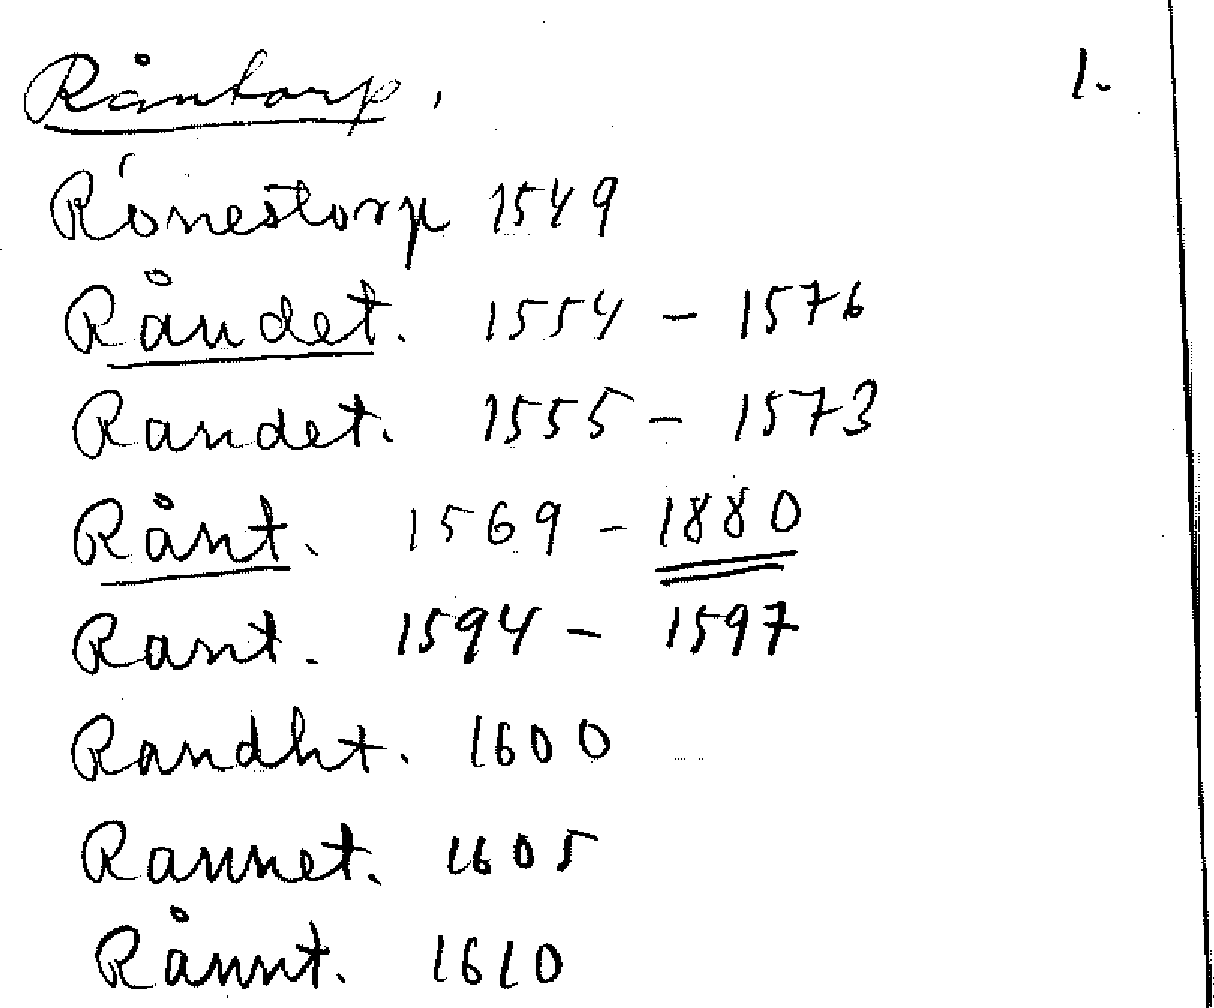 Råntorp. 1.
Rónestorp 1549
Råndet. 1554 - 1576
Randet. 1555 - 1573
Rånt. 1569 - 1880
Rant. 1594 - 1597
Randht. 1600
Rannet. 1605
Rånnt. 1610